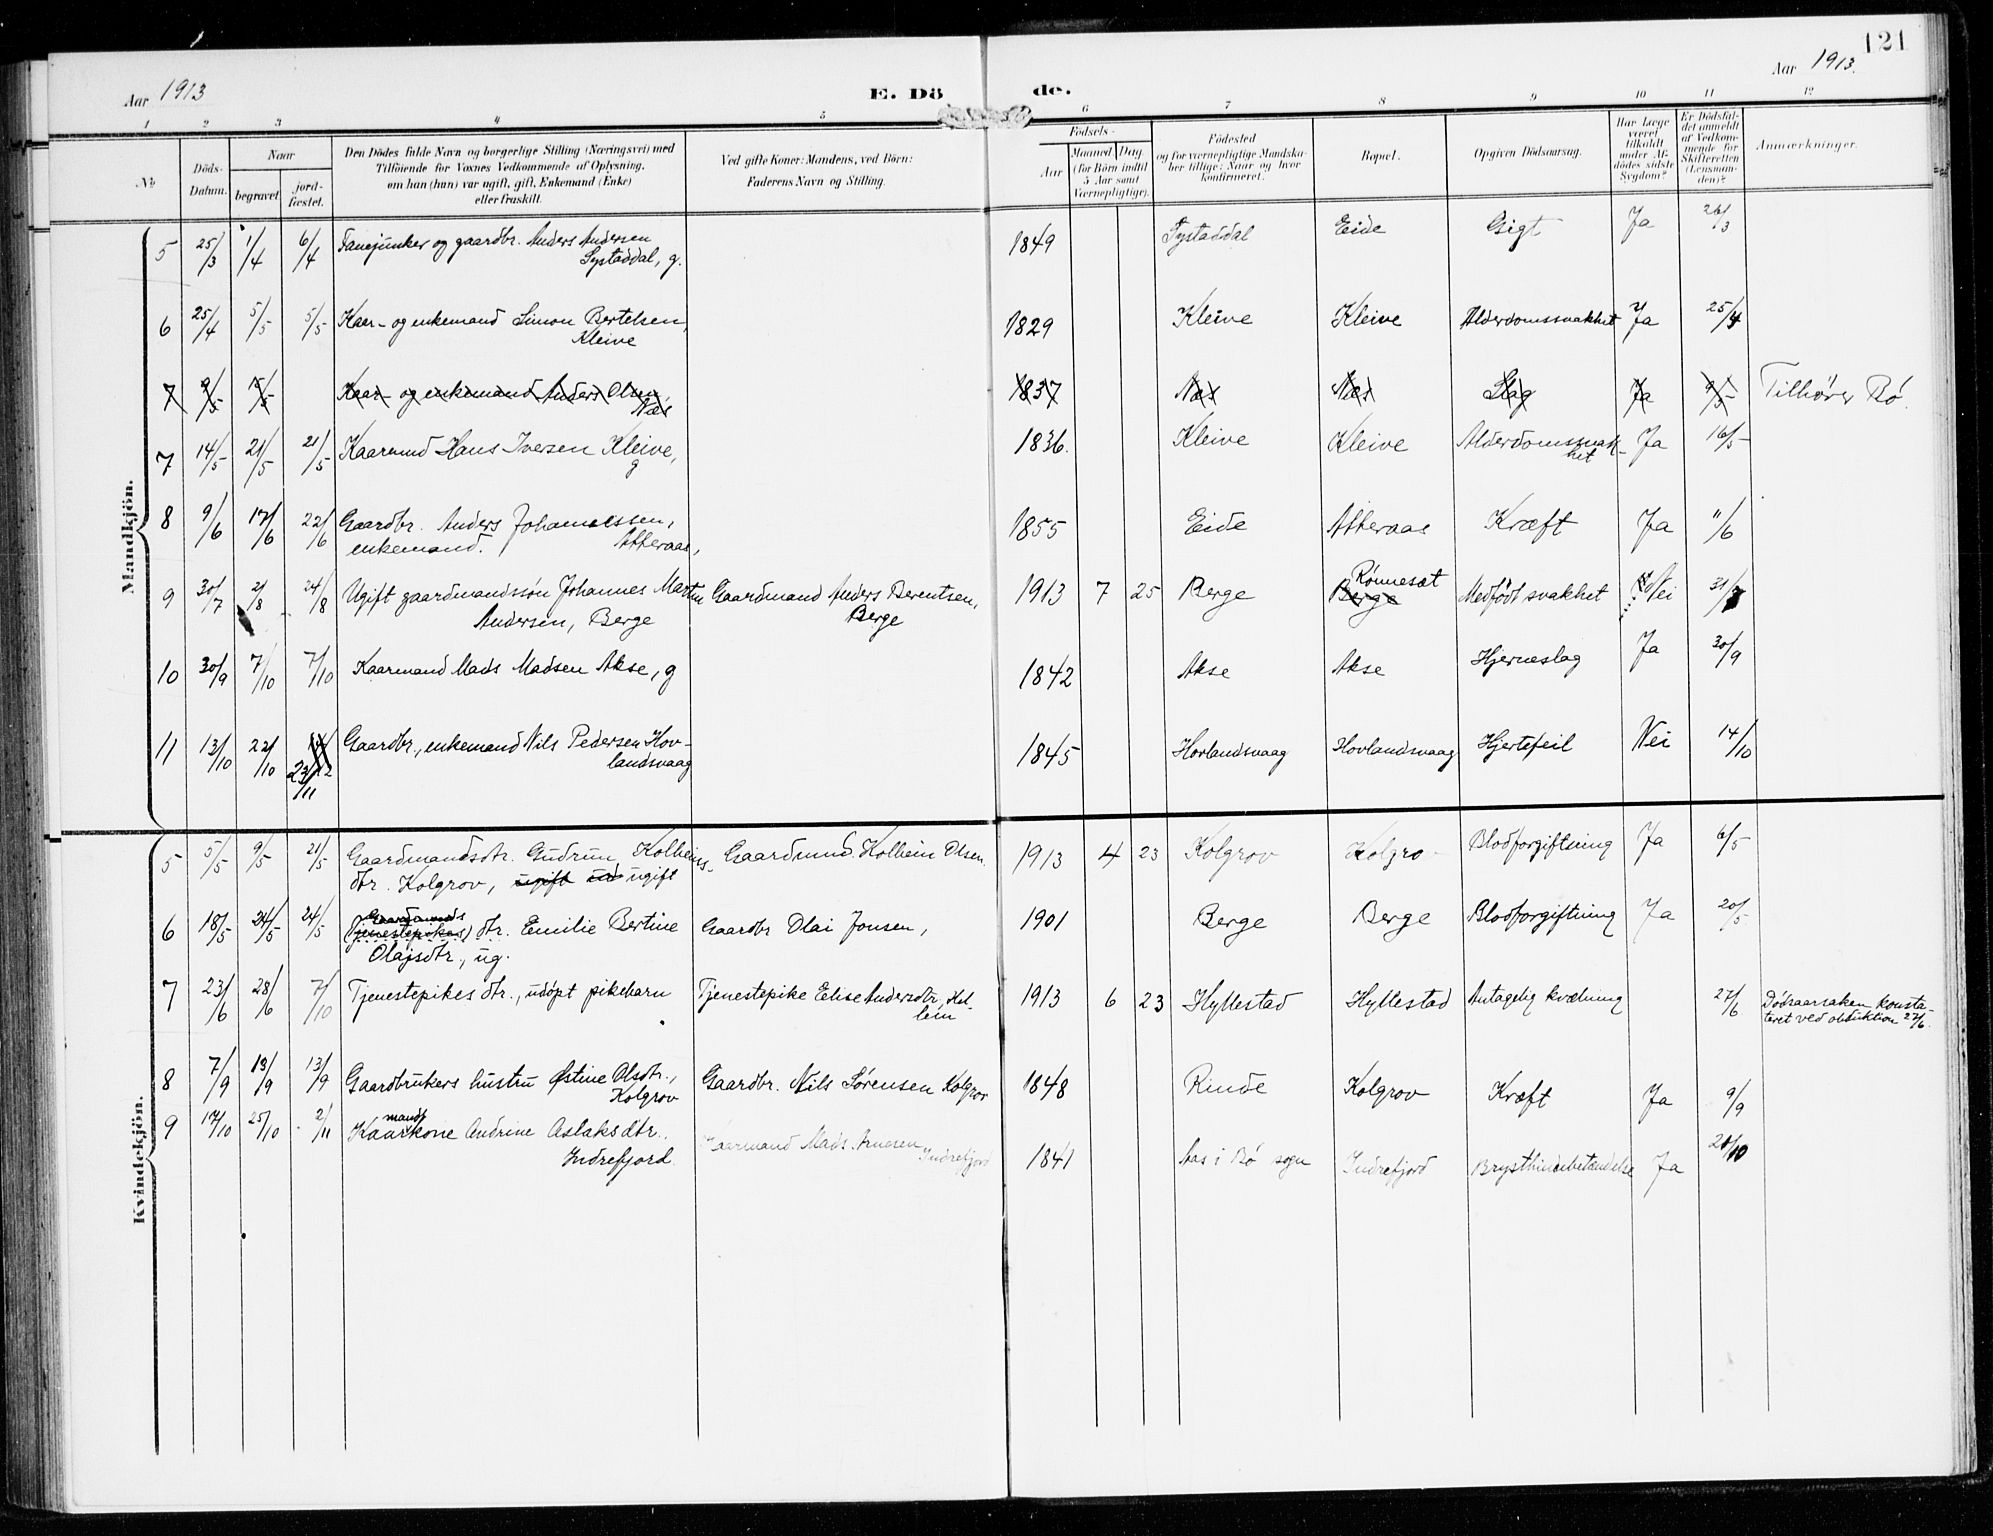 121
Aar 1913
E. Dö de.
Aar 1913.
1 2 3 4 5 6 7 8 9 10 11 12
No
Döds-Datum.
Naar
begravet
jord-fæstet.
Den Dödes fulde Navn og borgerlige Stilling (Næringsvei) med
Tilföiende for Voxnes Vedkommende af Oplysning,
om han (hun) var ugift, gift, Enkemand (Enke)
eller fraskilt.
Ved gifte Koner: Mandens, ved Börn:
Faderens Navn og Stilling.
Födsels-
Aar
Maaned Dag
(for Börn indtil
5 Aar samt
Værnepligtige).
Födested
og for værnepligtige Mandska-
ber tillige: Naar og hvor
konfirmeret.
Bopæl.
Opgiven Dödsaarsag.
Har Læge
været
tilkaldt
under Af-
dödes sidste
Sygdom?
Er Dödsfal-
det anmeldt
af Vedkom-
mende for
Skifteretten
(Lensman-
den)?
Anmærkninger.
Mandkjön.
5 25/3 1/4 6/4 Fanejunker og gaardbr. Anders Andersen 1849 Systaddal Eide Gigt Ja 26/3
Systaddal, g.
6 25/4 5/5 5/5 Kaar- og enkemand Simon Bertelsen, 1829 Kleive Kleive Alderdomssvakhet Ja 25/4
Kleive
7 9/5 15/5 Kaar- og enkemand Anders Olsen, 1837 Næs Næs Slag Ja 9/5 Tilhører Bø.
Næs
7 14/5 21/5 21/5 Kaarmand Hans Iversen Kleive, 1836. Kleive Kleive Alderdomssvak- Ja 16/5
g het
8 9/6 17/6 22/6 Gaardbr. Anders Johannessen, 1855 Eide Atteraas Kræft Ja 11/6
enkemand. Atteraas,
9 30/7 2/8 24/8 Ugift gaardmandssøn Johannes Martin Gaardmand Anders Berentsen, 1913 7 25 Berge Berge Rønneset Medfødt svakhet Nei 31/7
Andersen, Berge Berge
10 30/9 7/10 7/10 Kaarmand Mads Madsen Akse, g 1842 Akse Akse Hjerneslag Ja 30/9
11 13/10 22/10 23/11 Gaardbr., enkemand Nils Pedersen Hov- 1845 Hovlandsvaag Hovlandsvaag Hjertefeil Nei 14/10
landsvaag
Kvindekjön.
5 5/5 9/5 21/5 Gaardmandsdtr. Gudrun Kolbeins- Gaardmand Kolbein Olsen. 1913 4 23 Kolgrov Kolgro- Blodforgiftning Ja 6/5
dtr. Kolgrov, ugift ugift
6 18/5 24/5 24/5 Gaardmands (Tjenestepikes) dtr. Emilie Bertine Gaardbr Olai Jonsen, 1901 Berge Berge Blodforgiftning Ja 20/5
Olajsdtr., ug.
7 23/6 28/6 7/10 Tjenestepikes dtr., udøpt pikebarn Tjenestepike Elise Andersdtr, Hol- 1913 6 23 Hyllestad Hyllestad Antagelig kvælning 27/6 Dødsaarsaken konsta-
lein teret ved obduktion 27/6.
8 7/9 13/9 13/9 Gaardbrukers hustru Østine Olsdtr., Gaardbr. Nils Sørensen Kolgrov 1848 Rinde Kolgrov Kræft Ja 9/9
Kolgrov
9 17/10 25/10 2/11 Kaarmandskone Andrine Aslaksdtr. Kaarmand Mads Arnesen 1841 Aas i Bø sogn Indrefjord Brysthindebetændelse Ja 20/10
Indrefjord. Indrefjord